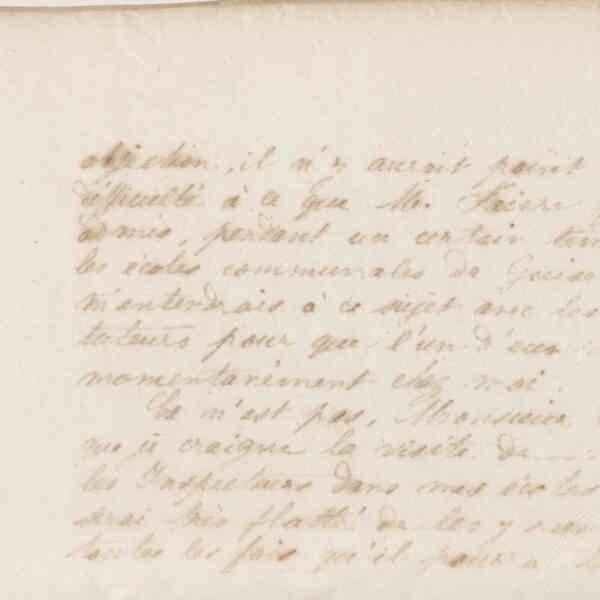 objection, il n'y aurait point
difficulté à ce que Mr.
admis, pendant un certain tem
les écoles communales de Guise
m'entendrais à ce sujet avec les
tuteurs pour que l'un d'eux
momentanément chez moi.
Ce n'est pas, Monsieur
que je craigne la visite de
les Inspecteurs dans mes écoles
serai très flatté de les y
toutes les fois qu'il pourra